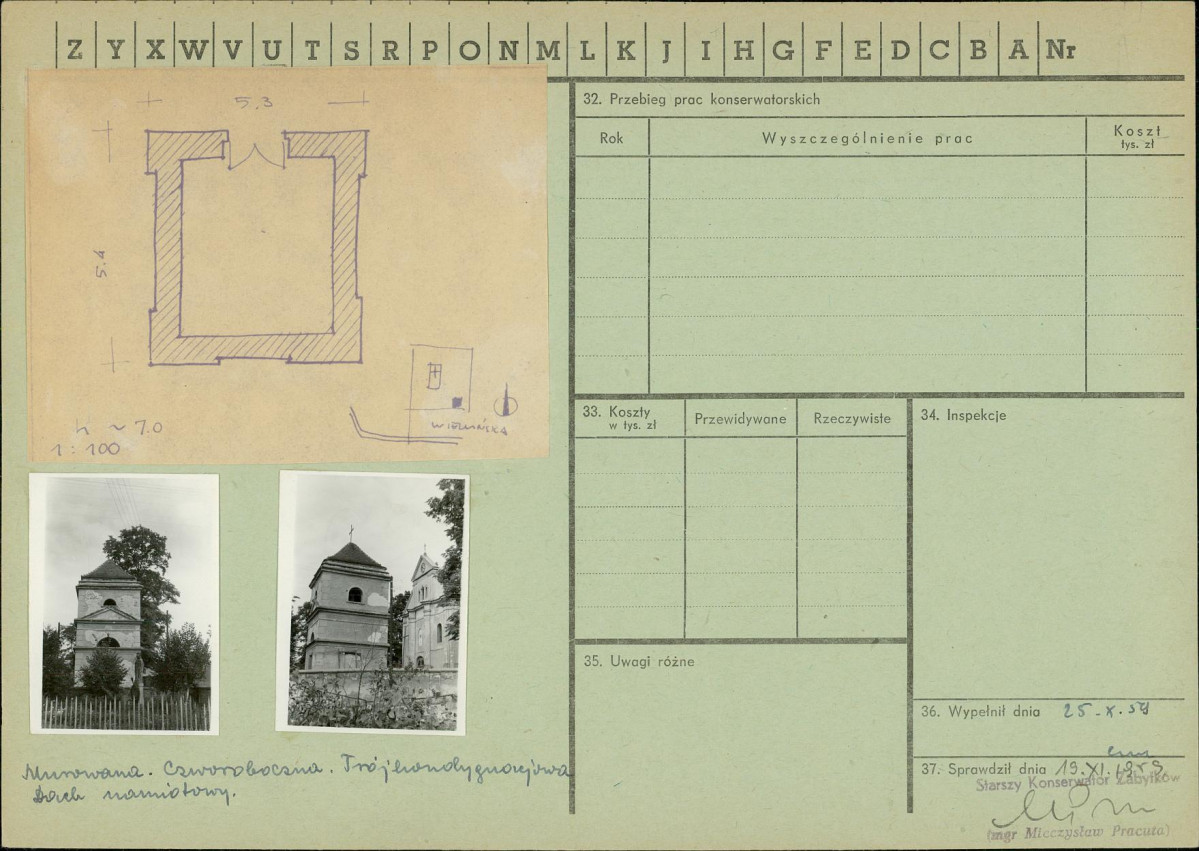 Z Y X W V U T S R P O N M L K J I H G F E D C B A Nr
5.3
5.4
h ~ 7.0
1 : 100
Murowana. Czworoboczna. Trójkondygnacjowa
Dach namiotowy.
32. Przebieg prac konserwatorskich
Rok Wyszczególnienie prac Koszt
tys. zł
33. Koszty Przewidywane Rzeczywiste
w tys. zł
34. Inspekcje
35. Uwagi różne
36. Wypełnił dnia 25-X.59
37. Sprawdził dnia 19.XI.1959
Starszy Konserwator Zabytków
(mgr Mieczysław Pracuta)